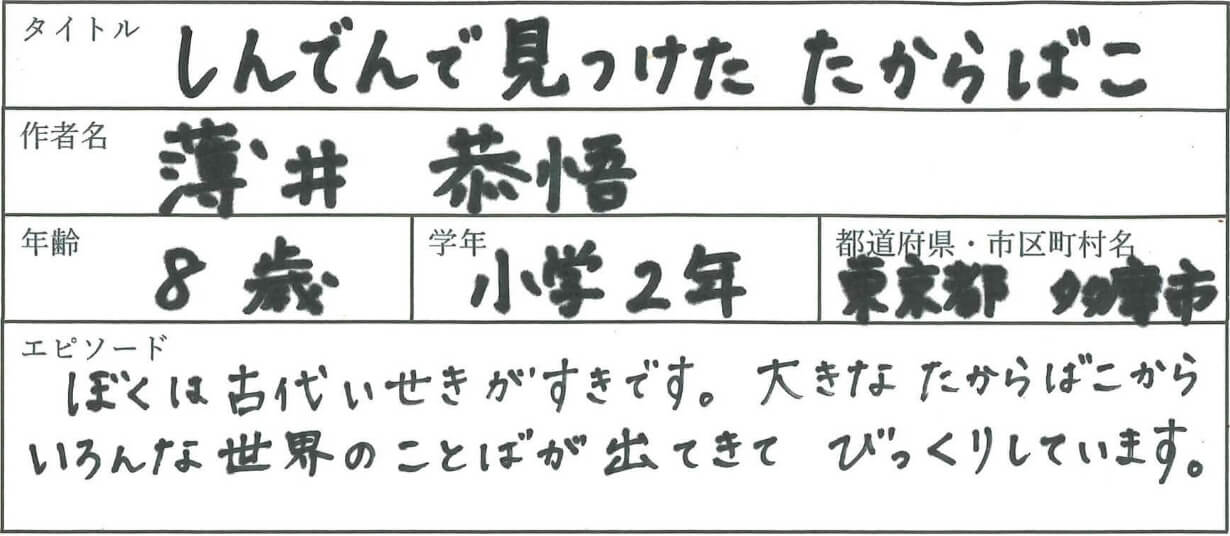 タイトル
しんでんで見つけた たからばこ
作者名
薄井 恭悟
年齢
8歳
学年
小学2年
都道府県・市区町村名
東京都 多摩市
エピソード
ぼくは古代いせきがすきです。大きなたからばこから
いろんな世界のことばが出てきて びっくりしています。